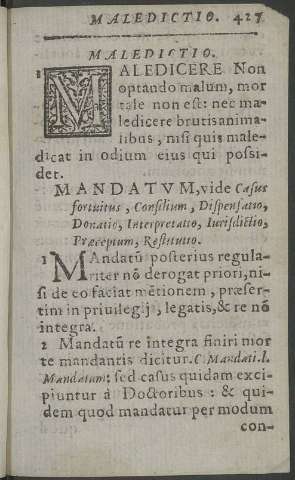 MALEDICTIO. 427
MALEDICTIO.
1 MALEDICERE Non
optando malum, mor
tale non est: nec ma-
ledicere brutis anima-
libus, nisi quis male-
dicat in odium eius qui possi-
det.
MANDATVM, vide Casus
fortuitus, Consilium, Dispensatio,
Donatio, Interpretatio, Iurisdictio,
Præceptum, Restitutio.
1 MAndatū posterius regula-
riter nō derogat priori, ni-
si de eo faciat mētionem, præser-
tim in priuilegijs, legatis, & re nō
integra.
2 Mandatū re integra finiri mor
te mandantis dicitur. C. Mandati. l.
Mandatum: sed casus quidam exci-
piuntur à Doctoribus: & qui-
dem quod mandatur per modum
con-